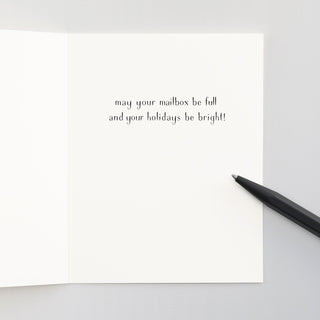 may your mailbox be full
and your holidays be bright!